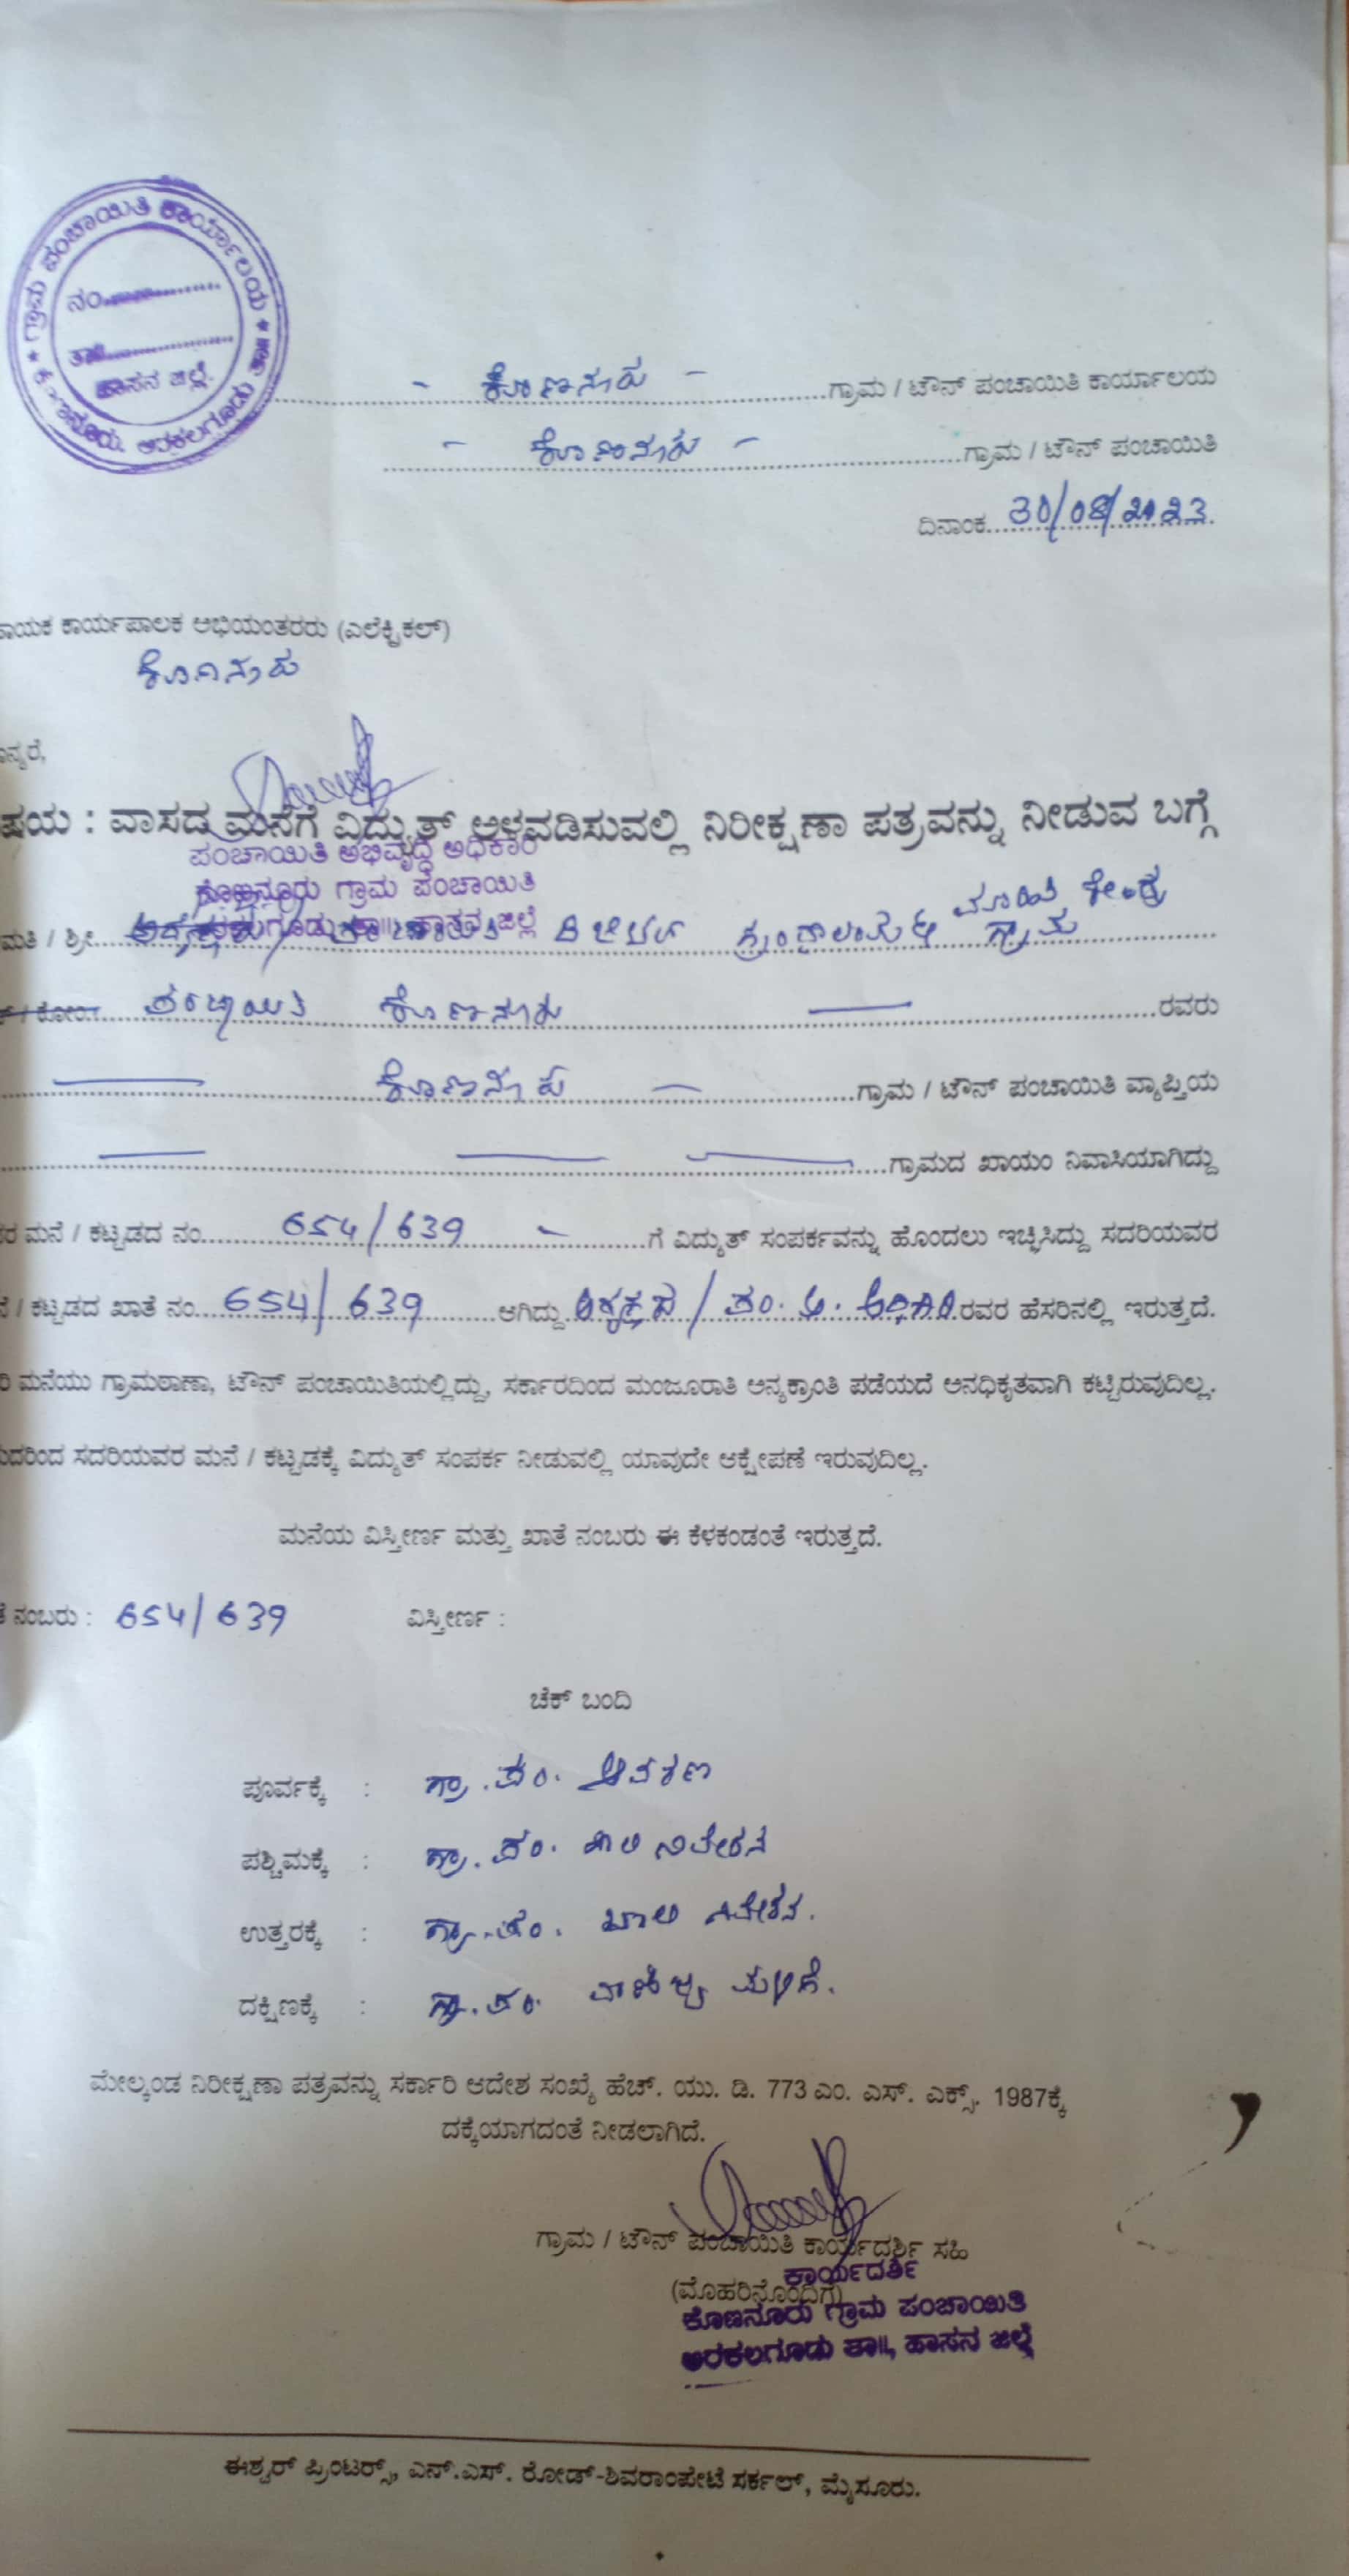 ಗ್ರಾಮ ಪಂಚಾಯಿತಿ ಕಾರ್ಯಾಲಯ
ನಂ
ತಾ||
ಹಾಸನ ಜಿಲ್ಲೆ.
ಅರಕಲಗೂಡು
- ಕೊಣನೂರು - ಗ್ರಾಮ / ಟೌನ್ ಪಂಚಾಯಿತಿ ಕಾರ್ಯಾಲಯ
- ಕೊಣನೂರು - ಗ್ರಾಮ / ಟೌನ್ ಪಂಚಾಯಿತಿ
ದಿನಾಂಕ 30/08/2023
ಾಯಕ ಕಾರ್ಯಪಾಲಕ ಅಭಿಯಂತರರು (ಎಲೆಕ್ಟ್ರಿಕಲ್)
ಕೊಣನೂರು
ನ್ಯರೆ,
ಷಯ : ವಾಸದ ಮನೆಗೆ ವಿದ್ಯುತ್ ಅಳವಡಿಸುವಲ್ಲಿ ನಿರೀಕ್ಷಣಾ ಪತ್ರವನ್ನು ನೀಡುವ ಬಗ್ಗೆ
ಪಂಚಾಯಿತಿ ಅಭಿವೃದ್ಧಿ ಅಧಿಕಾರಿ
ಕೊಣನೂರು ಗ್ರಾಮ ಪಂಚಾಯಿತಿ
ಅರಕಲಗೂಡು ತಾ|| ಹಾಸನ ಜಿಲ್ಲೆ
ಮಾಹಿತಿ ಕೇಂದ್ರ
ಮತಿ / ಶ್ರೀ ಡಿಜಿಟಲ್ ಗ್ರಂಥಾಲಯ & ಗ್ರಾಮ
ಪಂಚಾಯಿತಿ ಕೊಣನೂರು ರವರು
ಕೊಣನೂರು ಗ್ರಾಮ / ಟೌನ್ ಪಂಚಾಯಿತಿ ವ್ಯಾಪ್ತಿಯ
ಗ್ರಾಮದ ಖಾಯಂ ನಿವಾಸಿಯಾಗಿದ್ದು
ರ ಮನೆ / ಕಟ್ಟಡದ ನಂ 654/639 - ಗೆ ವಿದ್ಯುತ್ ಸಂಪರ್ಕವನ್ನು ಹೊಂದಲು ಇಚ್ಛಿಸಿದ್ದು ಸದರಿಯವರ
ನೆ / ಕಟ್ಟಡದ ಖಾತೆ ನಂ 654/639 ಆಗಿದ್ದು ಅಧ್ಯಕ್ಷರು / ಪಂ. ಅ. ಅಧಿಕಾರಿ ರವರ ಹೆಸರಿನಲ್ಲಿ ಇರುತ್ತದೆ.
ರಿ ಮನೆಯು ಗ್ರಾಮಠಾಣಾ, ಟೌನ್ ಪಂಚಾಯಿತಿಯಲ್ಲಿದ್ದು, ಸರ್ಕಾರದಿಂದ ಮಂಜೂರಾತಿ ಅನ್ಯಕ್ರಾಂತಿ ಪಡೆಯದೆ ಅನಧಿಕೃತವಾಗಿ ಕಟ್ಟಿರುವುದಿಲ್ಲ.
ುದರಿಂದ ಸದರಿಯವರ ಮನೆ / ಕಟ್ಟಡಕ್ಕೆ ವಿದ್ಯುತ್ ಸಂಪರ್ಕ ನೀಡುವಲ್ಲಿ ಯಾವುದೇ ಆಕ್ಷೇಪಣೆ ಇರುವುದಿಲ್ಲ.
ಮನೆಯ ವಿಸ್ತೀರ್ಣ ಮತ್ತು ಖಾತೆ ನಂಬರು ಈ ಕೆಳಕಂಡಂತೆ ಇರುತ್ತದೆ.
ತೆ ನಂಬರು : 654/639 ವಿಸ್ತೀರ್ಣ :
ಚೆಕ್ ಬಂದಿ
ಪೂರ್ವಕ್ಕೆ : ಗ್ರಾ. ಪಂ. ಆವರಣ
ಪಶ್ಚಿಮಕ್ಕೆ : ಗ್ರಾ. ಪಂ. ಖಾಲಿ ನಿವೇಶನ
ಉತ್ತರಕ್ಕೆ : ಗ್ರಾ. ಪಂ. ಖಾಲಿ ನಿವೇಶನ.
ದಕ್ಷಿಣಕ್ಕೆ : ಗ್ರಾ. ಪಂ. ವಾಣಿಜ್ಯ ಮಳಿಗೆ.
ಮೇಲ್ಕಂಡ ನಿರೀಕ್ಷಣಾ ಪತ್ರವನ್ನು ಸರ್ಕಾರಿ ಆದೇಶ ಸಂಖ್ಯೆ ಹೆಚ್. ಯು. ಡಿ. 773 ಎಂ. ಎಸ್. ಎಕ್ಸ್. 1987ಕ್ಕೆ
ದಕ್ಕೆಯಾಗದಂತೆ ನೀಡಲಾಗಿದೆ.
ಗ್ರಾಮ / ಟೌನ್ ಪಂಚಾಯಿತಿ ಕಾರ್ಯದರ್ಶಿ ಸಹಿ
(ಮೊಹರಿನೊಂದಿಗೆ)
ಕಾರ್ಯದರ್ಶಿ
ಕೊಣನೂರು ಗ್ರಾಮ ಪಂಚಾಯಿತಿ
ಅರಕಲಗೂಡು ತಾ||, ಹಾಸನ ಜಿಲ್ಲೆ
ಈಶ್ವರ್ ಪ್ರಿಂಟರ್ಸ್, ಎನ್.ಎಸ್. ರೋಡ್-ಶಿವರಾಂಪೇಟೆ ಸರ್ಕಲ್, ಮೈಸೂರು.